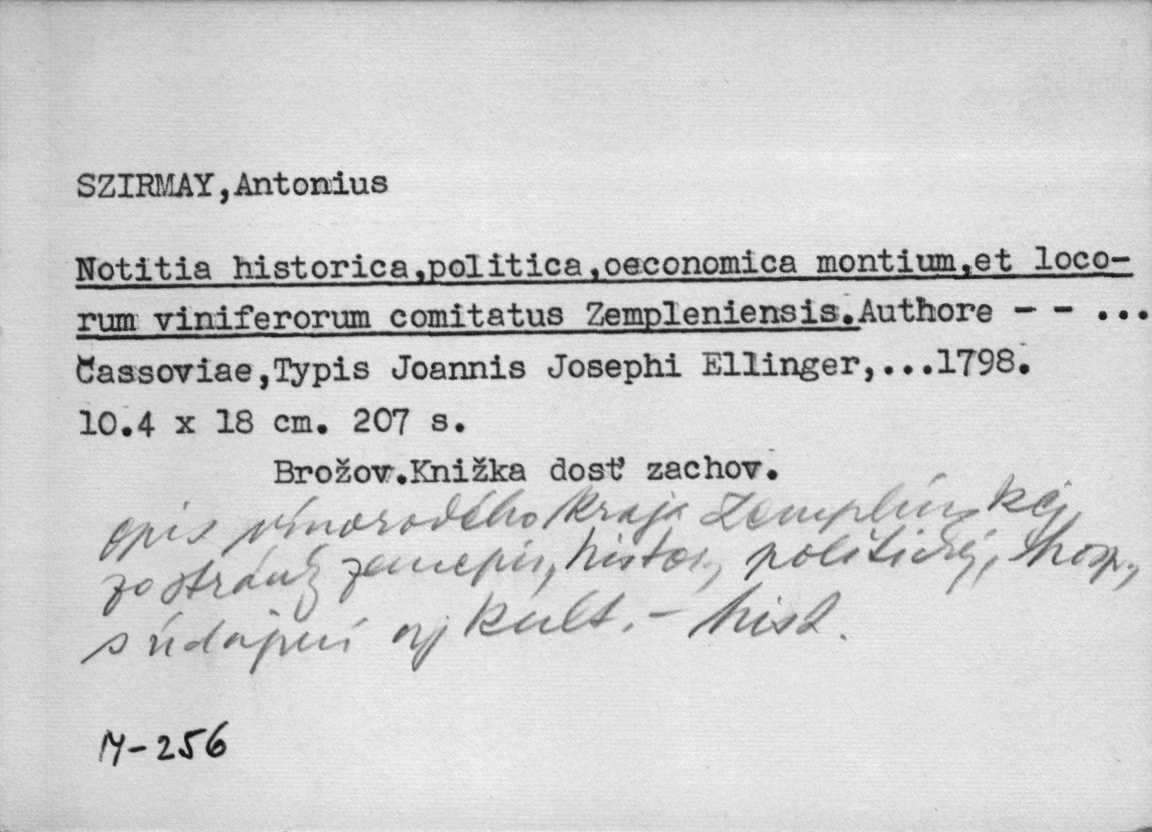 SZIRMAY,Antonius
Notitia historica,politica,oeconomica montium,et loco-
rum viniferorum comitatus Zempleniensis.Authore - - ...
Čassoviae,Typis Joannis Josephi Ellinger,...1798.
10.4 x 18 cm. 207 s.
Brožov.Knižka dosť zachov.
opis vínorodého kraja Zemplínskej
zo stránky zemepis, histor, politickej, hosp.,
s údajmi aj kult. - hist.
M-256